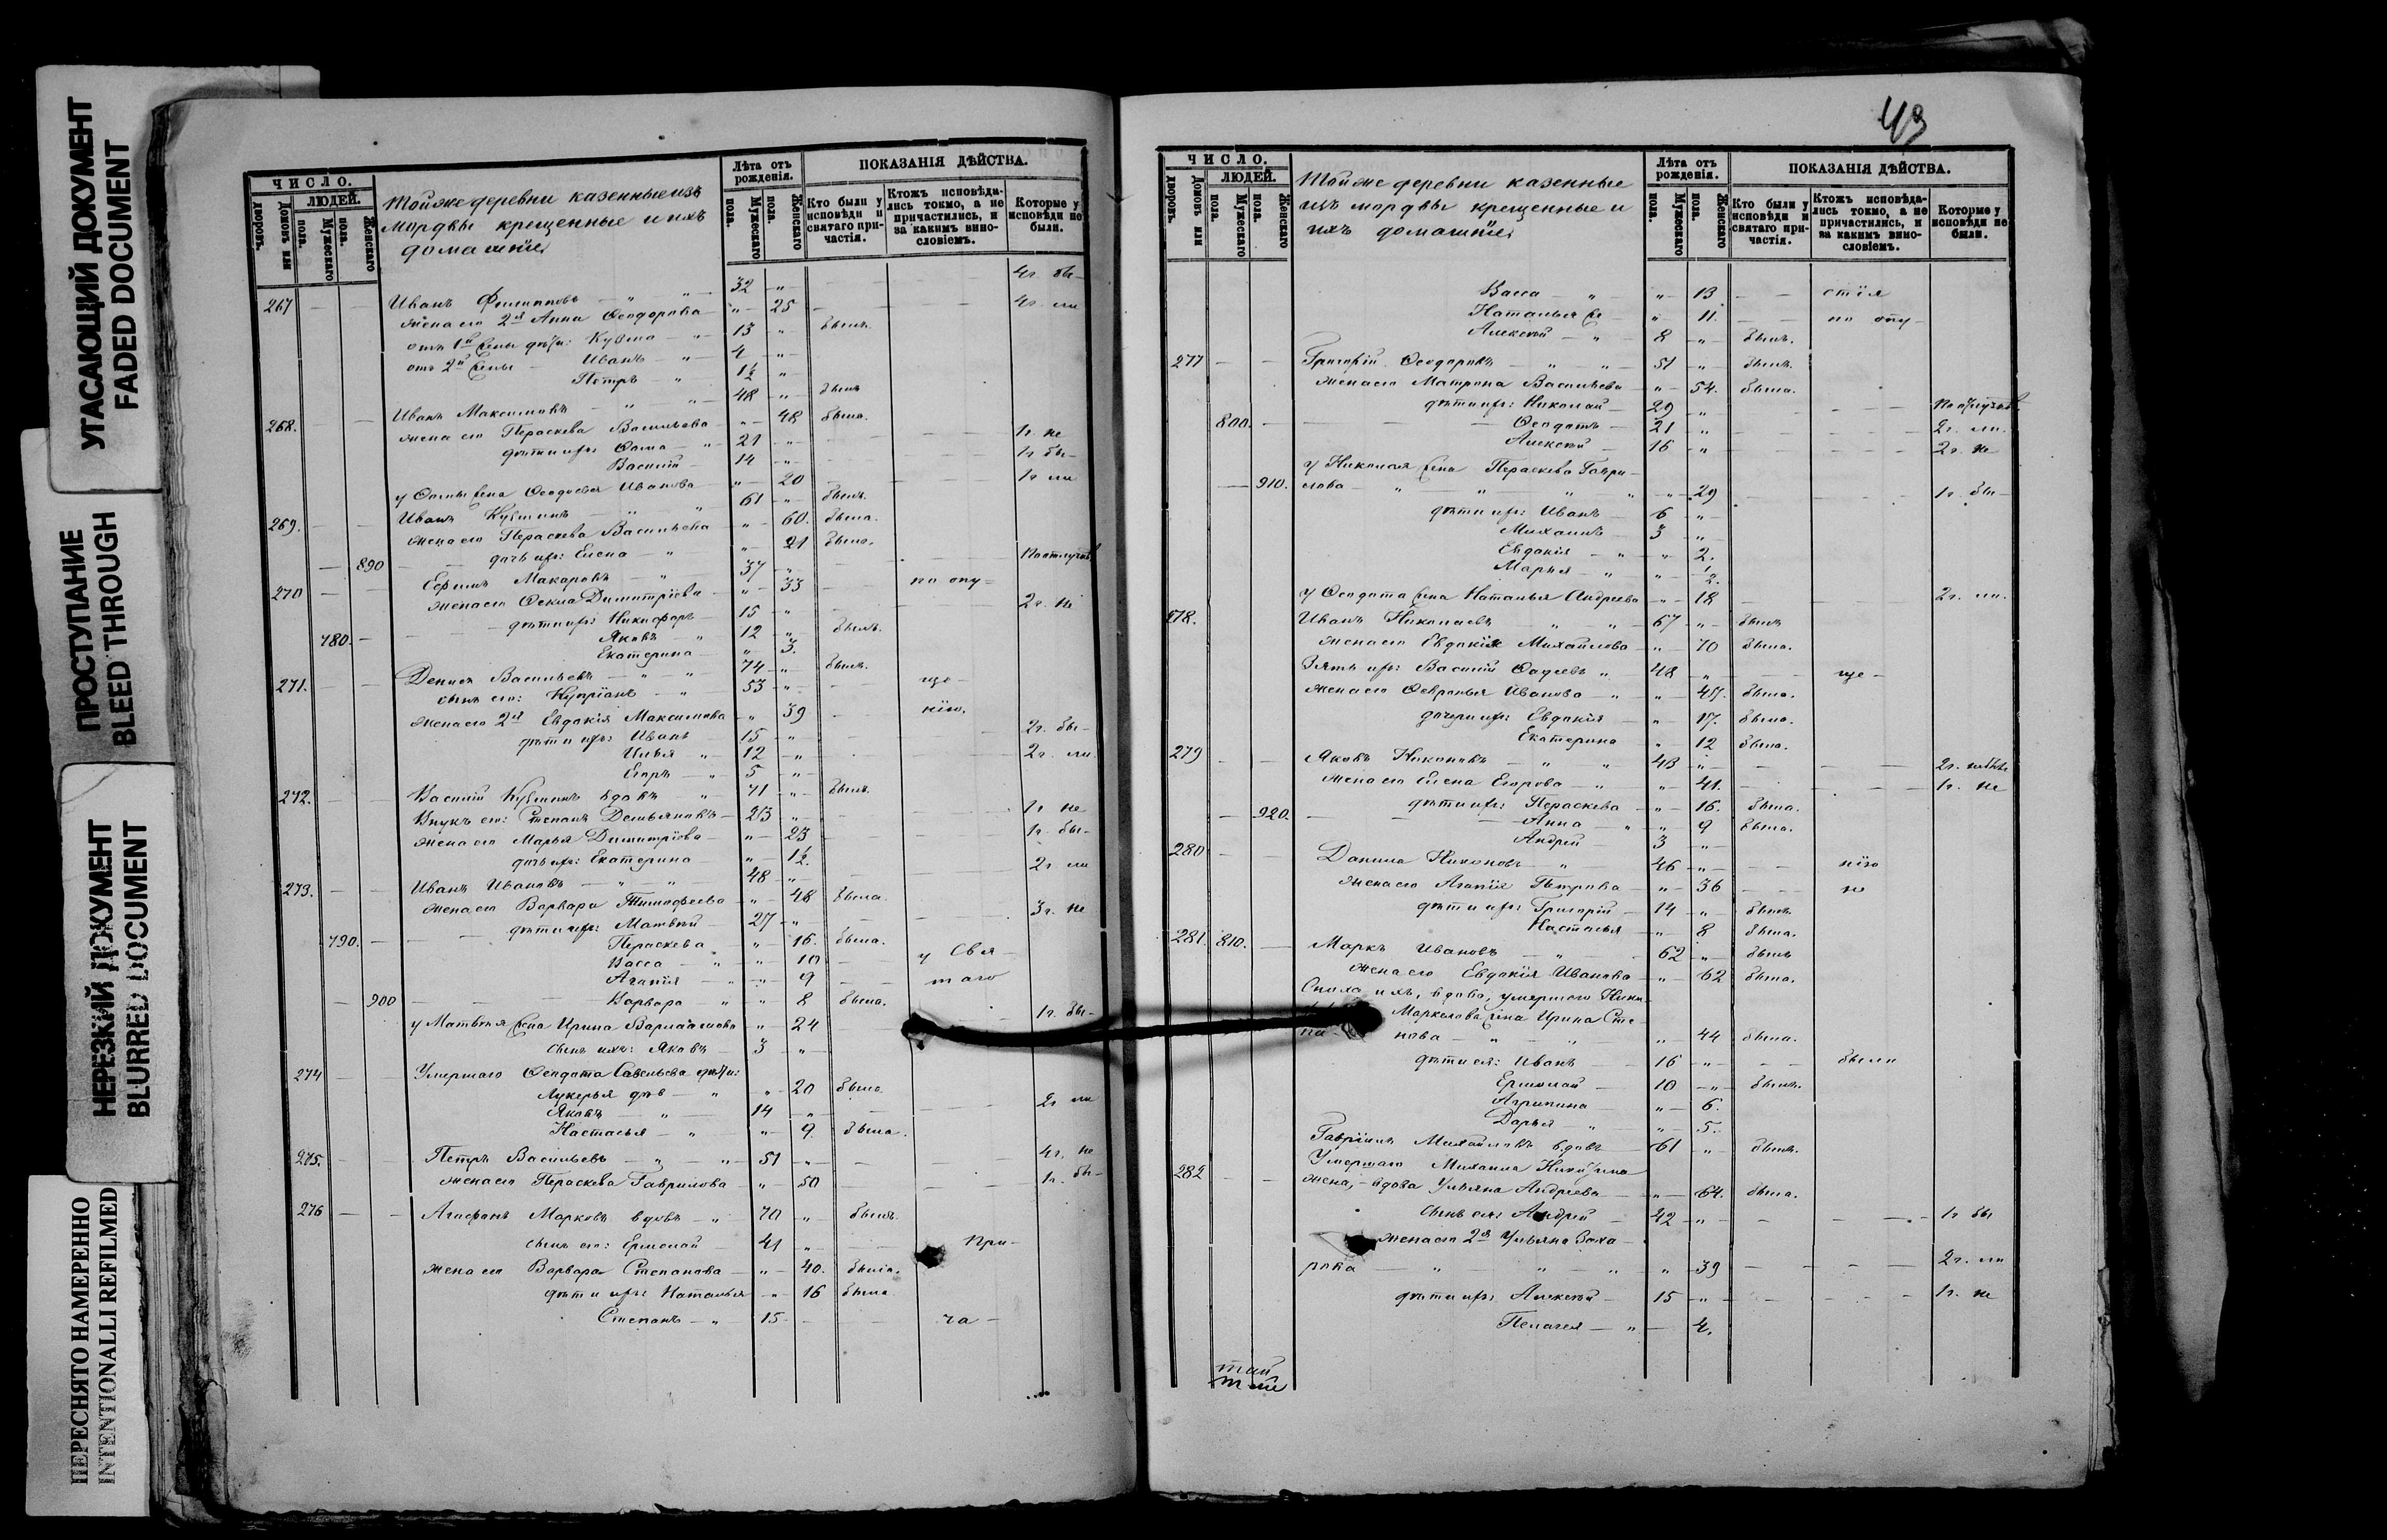 УГАСАЮЩИЙ ДОКУМЕНТ
FADED DOCUMENT
ПРОСТУПАНИЕ
BLEED THROUGH
НЕРЕЗКИЙ ДОКУМЕНТ
BLURRED DOCUMENT
ПЕРЕСНЯТО НАМЕРЕННО
INTENTIONALLI REFILMED
ЧИСЛО.
ЛЮДЕЙ.
Домовъ или дворовъ.
Мужескаго пола.
Женскаго пола.
Тойже деревни казенные изъ
мордвы крещенные и ихъ
домашніе
Лѣта отъ рожденія.
Мужескаго пола.
Женскаго пола.
ПОКАЗАНІЯ ДѢЙСТВА.
Кто были у исповѣди и святаго причастія.
Ктожъ исповѣдались токмо, а не причастились, и за какимъ винословіемъ.
Которые у исповѣди не были.
267 Иванъ Филипповъ 32 4г. бы-
жена его 2я Анна Ѳеодорова 25 4г. ли
отъ 1й жены дѣти: Кузма 13 былъ.
отъ 2й жены Иванъ 4
Петръ 1½
268. Иванъ Максимовъ 48 былъ
жена его Параскева Васильева 48 была.
дѣти ихъ: Ѳома 21 1г. не
Василій 14 1г бы-
у Ѳомы жена Ѳеодосья Иванова 20 1г ли
269. Иванъ Кузминъ 61 былъ.
жена его Параскева Васильева 60. была.
890 дочь ихъ: Елена 21 была.
270 Ефимъ Макаровъ 37 По отлучкѣ
жена его Ѳекла Димитріева 33 по опу-
дѣти ихъ: Никифоръ 15 2г. не
780. Яковъ 12 былъ.
Екатерина 3.
271. Денисъ Васильевъ 74 былъ.
сынъ его: Купріанъ 53 ще-
жена его 2я Евдокія Максимова 39 нію.
дѣти ихъ: Иванъ 15 2г. бы-
Илья 12 2г. ли
Егоръ 5
272. Василій Кузминъ вдовъ 71 былъ.
Внукъ его: Степанъ Демьяновъ 23 1г не
жена его Марья Димитріева 23 1г. бы-
дочь ихъ: Екатерина 1½.
273. Иванъ Ивановъ 48 2г ли
жена его Варвара Тимофеева 48 была.
790. дѣти ихъ: Матвѣй 27 3г. не
Параскева 16. была.
Васса 10 у Свя-
Агапія 9 таго
900 Варвара 8 была.
у Матвѣя жена Ирина Варлаамова 24 1г. бы-
сынъ ихъ: Яковъ 3
274 Умершаго Ѳеодота Савельева дѣти:
Лукерья дѣв 20 была
Яковъ 14 2г ли
Настасья 9 была.
275. Петръ Васильевъ 51 4г. не
жена его Параскева Гаврилова 50 1г. бы-
276 Агафонъ Марковъ вдовъ 70 былъ
сынъ его: Ермолай 41 При-
жена его Варвара Степанова 40. была.
дѣти ихъ: Наталья 16 была
Степанъ 15 ча-
43
ЧИСЛО.
ЛЮДЕЙ.
Домовъ или дворовъ.
Мужескаго пола.
Женскаго пола.
Тойже деревни казенные
изъ мордвы крещенные и
ихъ домашніе
Лѣта отъ рожденія.
Мужескаго пола.
Женскаго пола.
ПОКАЗАНІЯ ДѢЙСТВА.
Кто были у исповѣди и святаго причастія.
Ктожъ исповѣдались токмо, а не причастились, и за какимъ винословіемъ.
Которые у исповѣди не были.
Васса 13 стія
Наталья 11. по опу-
Алексѣй 8 былъ.
277 Григорій Ѳеодоровъ 51 былъ.
жена его Матрона Васильева 54. была.
дѣти ихъ: Николай 29 По отлучкѣ
800. Ѳеодотъ 21 2г. ли.
Алексѣй 16 2г. не
у Николая жена Параскева Гаври-
910. лова 29 1г. бы-
дѣти ихъ: Иванъ 6
Михаилъ 3
Евдокія 2.
Марья ½.
у Ѳеодота жена Наталья Андреева 18 2г. ли.
278. Иванъ Николаевъ 67 былъ
жена его Евдокія Михайлова 70 была.
Зять ихъ: Василій Ѳадеевъ 48 ще-
жена его Февронья Иванова 47. была.
дочери ихъ: Евдокія 17. была.
Екатерина 12 была.
279 Яковъ Никоновъ 43
жена его Елена Егорова 41. 1г. не
дѣти ихъ: Параскева 16. была.
920. Анна 9 была.
Андрей 3
280 Данила Никоновъ 46 нію
жена его Агапія Петрова 36 не
дѣти ихъ: Григорій 14 былъ
Настасья 8 была.
281. 810. Маркъ Ивановъ 62 былъ
жена его Евдокія Иванова 62 была.
Сноха ихъ, вдова, умершаго Ники-
Маркелова жена Ирина Сте-
нова 44 была.
дѣти ея: Иванъ 16 были
Ермолай 10 былъ.
Агрипина 6.
Дарья 5.
Гаврiилъ Михайловъ вдовъ 61 былъ.
282 Умершаго Михаила Никитина
жена, вдова Ульяна Андреева 64. была.
сынъ ея: Андрей 42 1г бы
жена его 2я Ульяна Заха-
рова 39 2г. ли
дѣти ихъ: Алексѣй 15 1г. не
Пелагея 4.